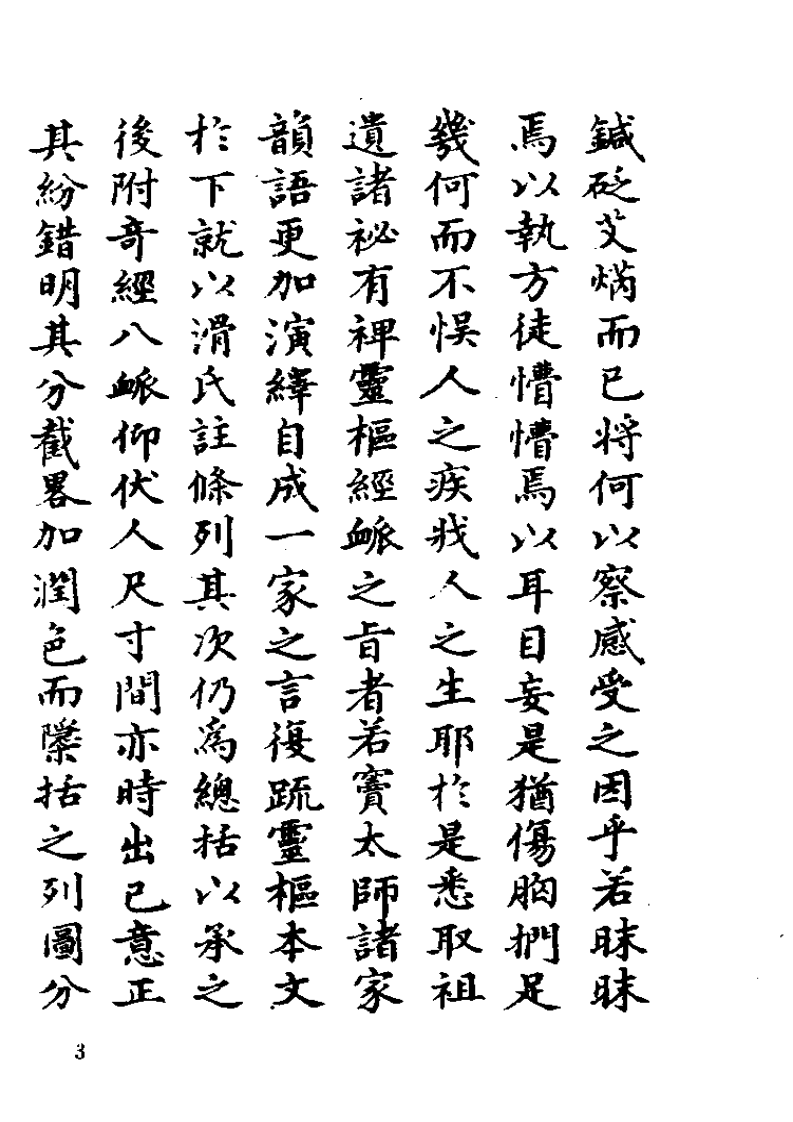 鍼砭艾焫而已将何以察感受之因乎若昧昧
焉以執方徒懵懵焉以耳目妄是猶傷胸捫足
幾何而不悮人之疾戕人之生耶扵是悉取祖
遺諸祕有裨靈樞經衇之旨者若竇太師諸家
韻語更加演繹自成一家之言復疏靈樞本文
扵下就以滑氏註條列其次仍爲總括以承之
後附竒經八衇仰伏人尺寸間亦時出己意正
其紛錯明其分截畧加潤色而檃括之列圖分
3